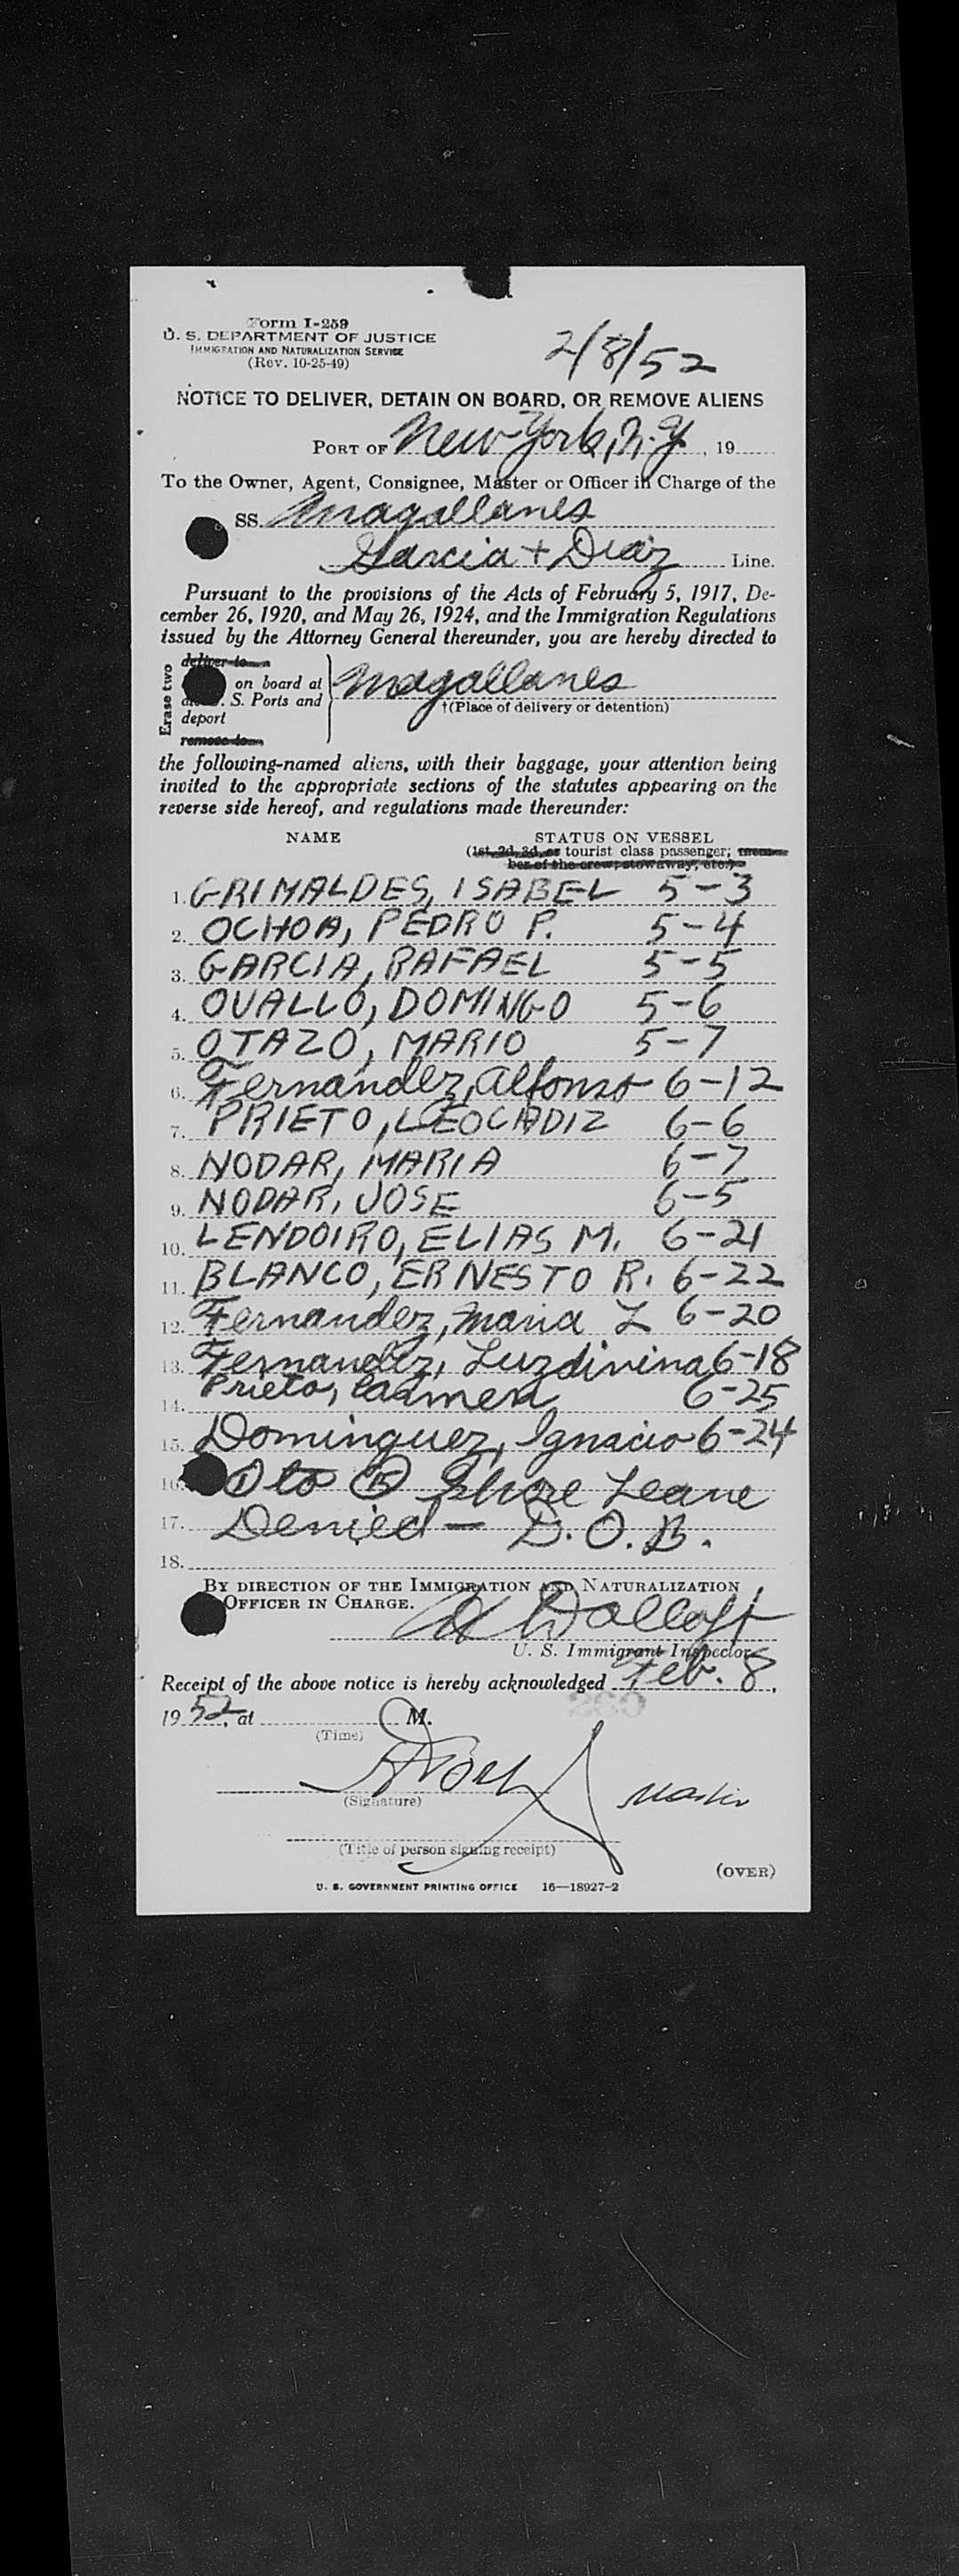 Form I-259
U. S. DEPARTMENT OF JUSTICE
IMMIGRATION AND NATURALIZATION SERVICE
(Rev. 10-25-49)
2/8/52
NOTICE TO DELIVER, DETAIN ON BOARD, OR REMOVE ALIENS
PORT OF New York, N.Y. , 19
To the Owner, Agent, Consignee, Master or Officer in Charge of the
SS. Magallanes
Garcia + Diaz Line.
Pursuant to the provisions of the Acts of February 5, 1917, De-
cember 26, 1920, and May 26, 1924, and the Immigration Regulations
issued by the Attorney General thereunder, you are hereby directed to
Erase two
deliver to
on board at
S. Ports and
deport
remove to
Magallanes
†(Place of delivery or detention)
the following-named aliens, with their baggage, your attention being
invited to the appropriate sections of the statutes appearing on the
reverse side hereof, and regulations made thereunder:
NAME STATUS ON VESSEL
(1st, 2d, 3d, or tourist class passenger; mem-
ber of the crew; stowaway, etc.)
1. GRIMALDES, ISABEL 5-3
2. OCHOA, PEDRO P. 5-4
3. GARCIA, RAFAEL 5-5
4. OVALLO, DOMINGO 5-6
5. OTAZO, MARIO 5-7
6. Fernandez, Alfonso 6-12
7. PRIETO, LEOCADIZ 6-6
8. NODAR, MARIA 6-7
9. NODAR, JOSE 6-5
10. LENDOIRO, ELIAS M. 6-21
11. BLANCO, ERNESTO R. 6-22
12. Fernandez, Maria L 6-20
13. Fernandez, Luzdivina 6-18
14. Prieto, Carmen 6-25
15. Dominguez, Ignacio 6-24
16. 1 to 15 Shore Leave
17. Denied — D.O.B.
18.
BY DIRECTION OF THE IMMIGRATION AND NATURALIZATION
OFFICER IN CHARGE.
U. S. Immigrant Inspector.
Receipt of the above notice is hereby acknowledged Feb. 8,
1952, at M.
(Time)
Master
(Signature)
(Title of person signing receipt)
(OVER)
U. S. GOVERNMENT PRINTING OFFICE 16—18927-2